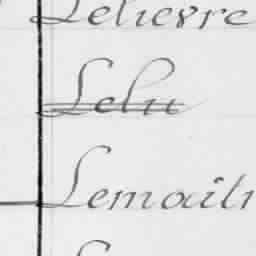 Lelievre
Lelu
Lemaitr